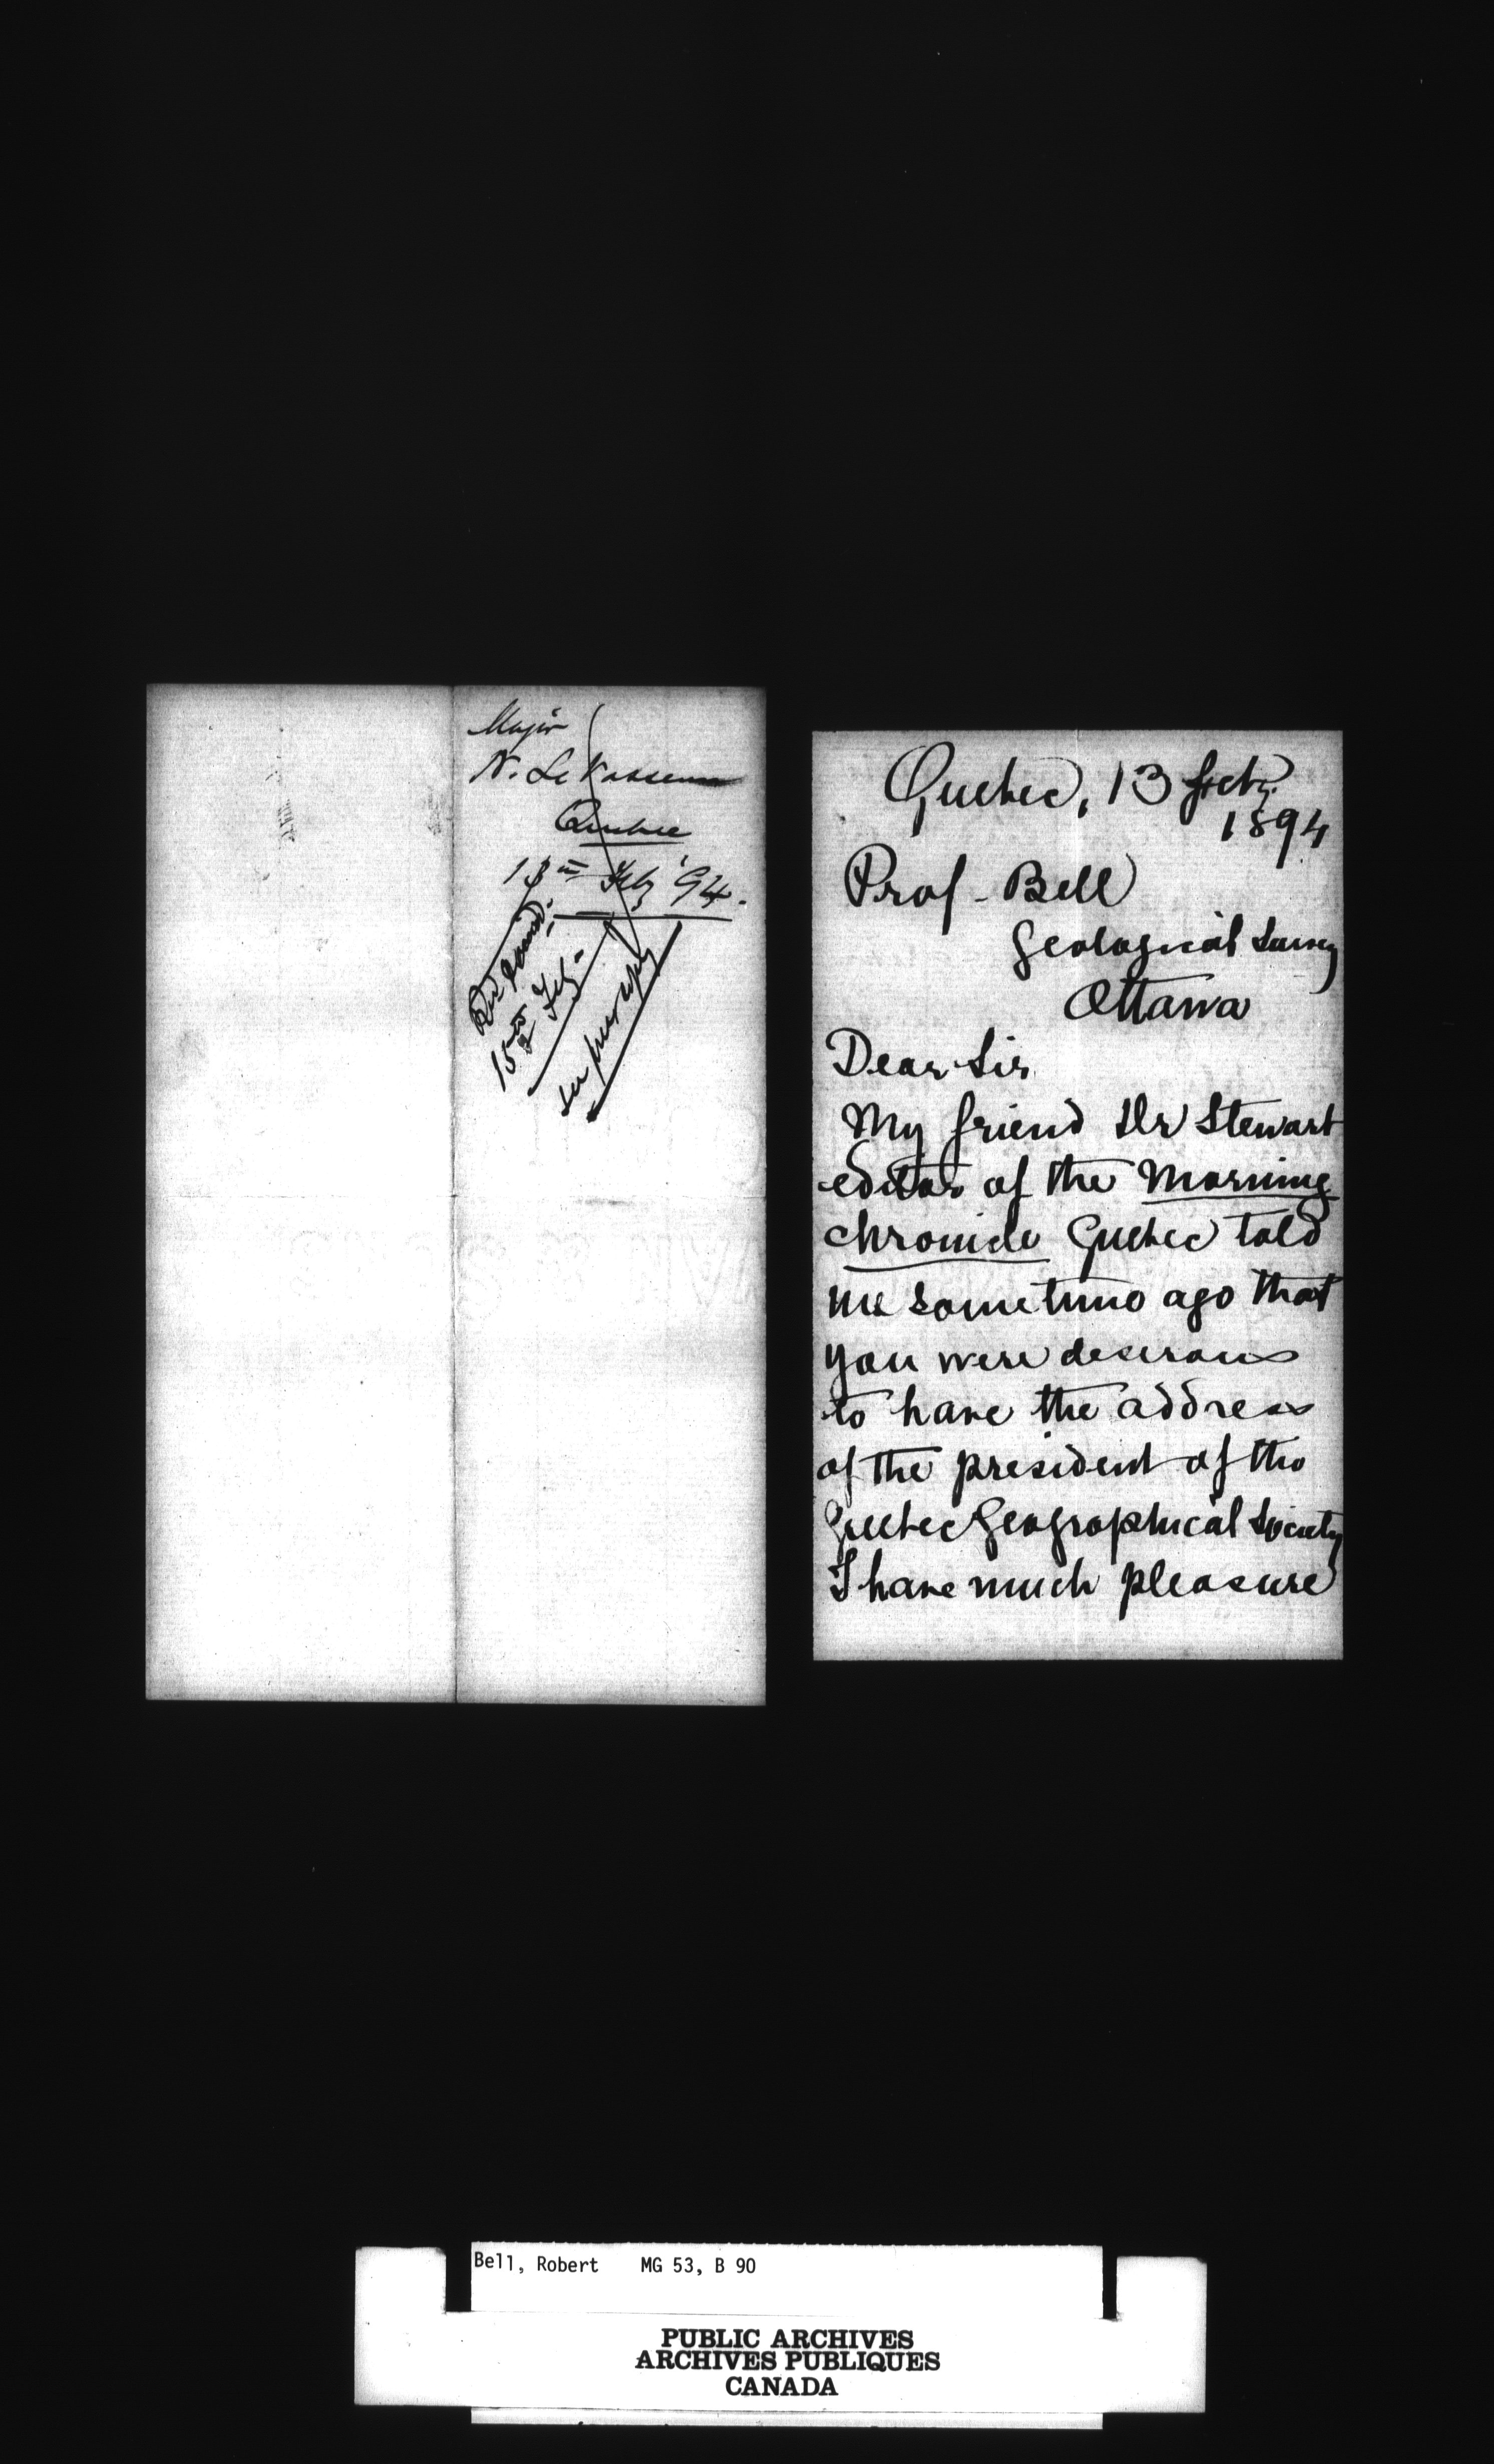 Major
N. Le Vasseur
Quebec
13th Feby '94.
Ans'd
15th Feby -
see press copy
Quebec, 13 Feby
1894
Prof - Bell
Geological Survey
Ottawa
Dear Sir
My friend Dr Stewart
editor of the Morning
Chronicle Quebec told
me sometime ago that
you were desirous
to have the address
of the president of the
Quebec Geographical Society
I have much pleasure
Bell, Robert MG 53, B 90
PUBLIC ARCHIVES
ARCHIVES PUBLIQUES
CANADA